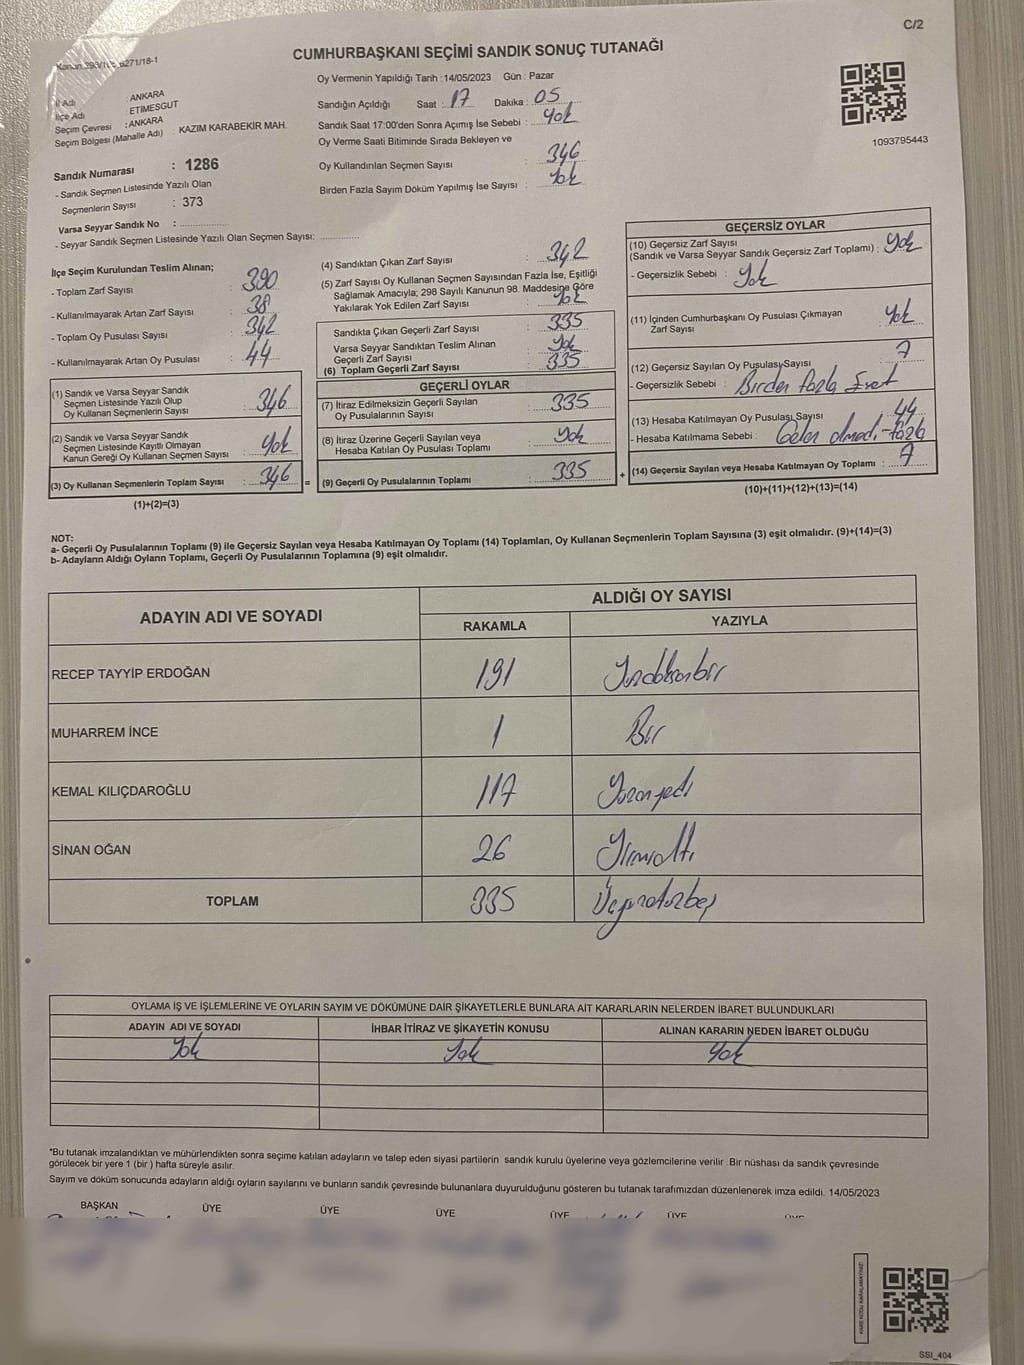 C/2
CUMHURBAŞKANI SEÇİMİ SANDIK SONUÇ TUTANAĞI
İl Adı : ANKARA
İlçe Adı ETİMESGUT
Seçim Çevresi : ANKARA
Seçim Bölgesi (Mahalle Adı) : KAZIM KARABEKİR MAH.
Sandık Numarası : 1286
- Sandık Seçmen Listesinde Yazılı Olan
Seçmenlerin Sayısı : 373
Varsa Seyyar Sandık No :
- Seyyar Sandık Seçmen Listesinde Yazılı Olan Seçmen Sayısı:
Oy Vermenin Yapıldığı Tarih : 14/05/2023 Gün : Pazar
Sandığın Açıldığı Saat : 17 Dakika : 05
Sandık Saat 17:00'den Sonra Açımış İse Sebebi : Yok
Oy Verme Saati Bitiminde Sırada Bekleyen ve
Oy Kullandırılan Seçmen Sayısı : 346
Birden Fazla Sayım Döküm Yapılmış İse Sayısı : Yok
1093795443
İlçe Seçim Kurulundan Teslim Alınan;
- Toplam Zarf Sayısı : 390
- Kullanılmayarak Artan Zarf Sayısı : 38
- Toplam Oy Pusulası Sayısı : 342
- Kullanılmayarak Artan Oy Pusulası : 44
(1) Sandık ve Varsa Seyyar Sandık
Seçmen Listesinde Yazılı Olup
Oy Kullanan Seçmenlerin Sayısı : 346
(2) Sandık ve Varsa Seyyar Sandık
Seçmen Listesinde Kayıtlı Olmayan
Kanun Gereği Oy Kullanan Seçmen Sayısı : Yok
(3) Oy Kullanan Seçmenlerin Toplam Sayısı : 346 =
(1)+(2)=(3)
(4) Sandıktan Çıkan Zarf Sayısı : 342
(5) Zarf Sayısı Oy Kullanan Seçmen Sayısından Fazla İse, Eşitliği
Sağlamak Amacıyla; 298 Sayılı Kanunun 98. Maddesine Göre
Yakılarak Yok Edilen Zarf Sayısı : Yok
Sandıkta Çıkan Geçerli Zarf Sayısı : 335
Varsa Seyyar Sandıktan Teslim Alınan
Geçerli Zarf Sayısı : Yok
(6) Toplam Geçerli Zarf Sayısı : 335
GEÇERLİ OYLAR
(7) İtiraz Edilmeksizin Geçerli Sayılan
Oy Pusulalarının Sayısı : 335
(8) İtiraz Üzerine Geçerli Sayılan veya
Hesaba Katılan Oy Pusulası Toplamı : Yok
(9) Geçerli Oy Pusulalarının Toplamı : 335 +
GEÇERSİZ OYLAR
(10) Geçersiz Zarf Sayısı
(Sandık ve Varsa Seyyar Sandık Geçersiz Zarf Toplamı) : Yok
- Geçersizlik Sebebi : Yok
(11) İçinden Cumhurbaşkanı Oy Pusulası Çıkmayan
Zarf Sayısı : Yok
(12) Geçersiz Sayılan Oy Pusulası Sayısı : 7
- Geçersizlik Sebebi : Birden fazla Evet
(13) Hesaba Katılmayan Oy Pusulası Sayısı : 44
- Hesaba Katılmama Sebebi : Gelen olmadı-fazla
(14) Geçersiz Sayılan veya Hesaba Katılmayan Oy Toplamı : 7
(10)+(11)+(12)+(13)=(14)
NOT:
a- Geçerli Oy Pusulalarının Toplamı (9) ile Geçersiz Sayılan veya Hesaba Katılmayan Oy Toplamı (14) Toplamları, Oy Kullanan Seçmenlerin Toplam Sayısına (3) eşit olmalıdır. (9)+(14)=(3)
b- Adayların Aldığı Oyların Toplamı, Geçerli Oy Pusulalarının Toplamına (9) eşit olmalıdır.
ADAYIN ADI VE SOYADI ALDIĞI OY SAYISI
RAKAMLA YAZIYLA
RECEP TAYYİP ERDOĞAN 191
MUHARREM İNCE 1 Bir
KEMAL KILIÇDAROĞLU 117 Yüzonyedi
SİNAN OĞAN 26 Yirmialtı
TOPLAM 335 Üçyüzotuzbeş
OYLAMA İŞ VE İŞLEMLERİNE VE OYLARIN SAYIM VE DÖKÜMÜNE DAİR ŞİKAYETLERLE BUNLARA AİT KARARLARIN NELERDEN İBARET BULUNDUKLARI
ADAYIN ADI VE SOYADI İHBAR İTİRAZ VE ŞİKAYETİN KONUSU ALINAN KARARIN NEDEN İBARET OLDUĞU
Yok Yok Yok
*Bu tutanak imzalandıktan ve mühürlendikten sonra seçime katılan adayların ve talep eden siyasi partilerin sandık kurulu üyelerine veya gözlemcilerine verilir .Bir nüshası da sandık çevresinde
görülecek bir yere 1 (bir ) hafta süreyle asılır.
Sayım ve döküm sonucunda adayların aldığı oyların sayılarını ve bunların sandık çevresinde bulunanlara duyurulduğunu gösteren bu tutanak tarafımızdan düzenlenerek imza edildi. 14/05/2023
BAŞKAN ÜYE ÜYE ÜYE ÜYE ÜYE
SSI_404